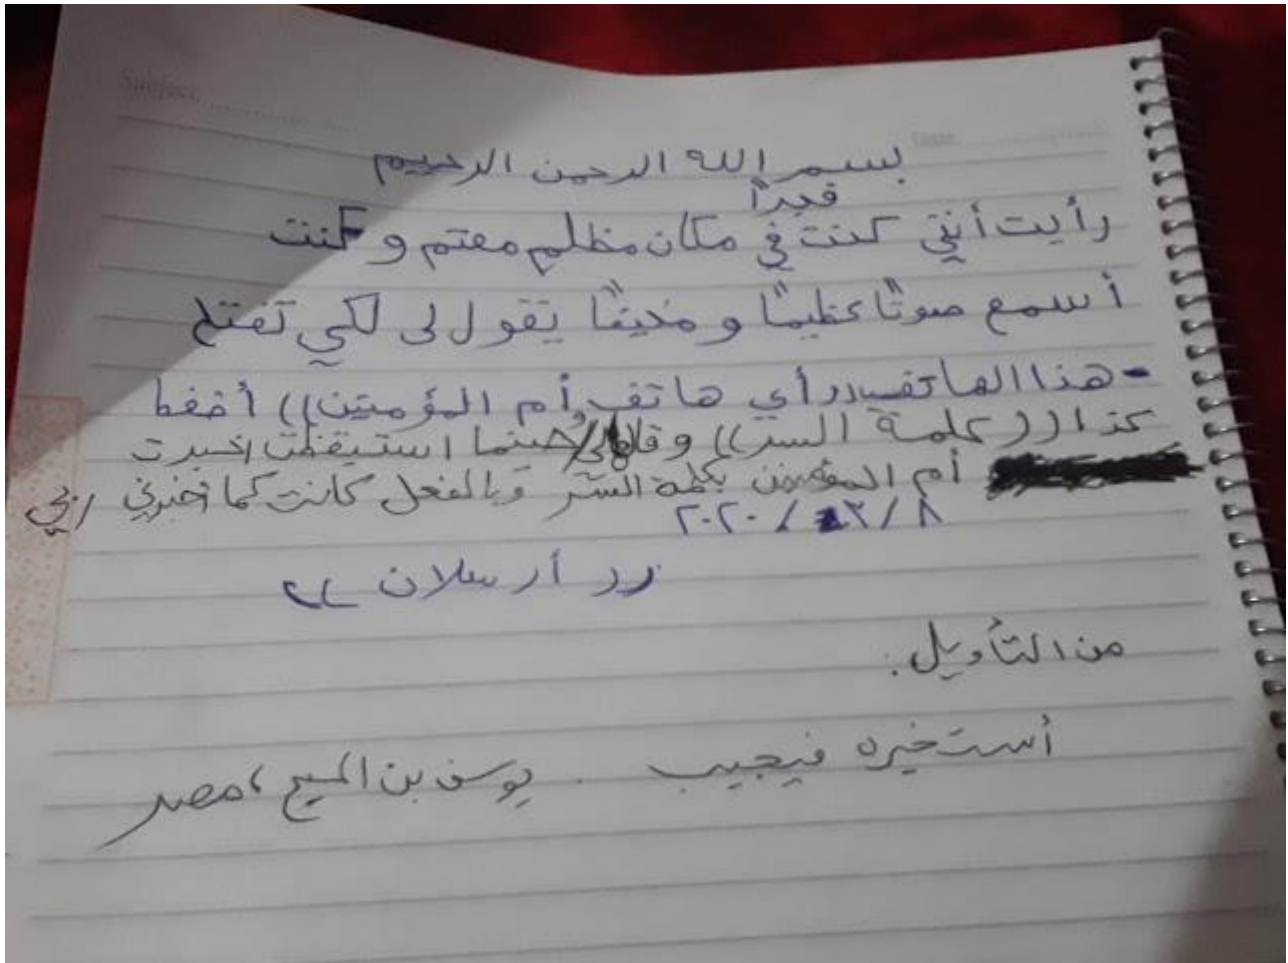 Subject:
Date
بسم الله الرحمن الرحيم
فجراً
رأيت أنني كنت في مكان مظلم معتم و كنت
أسمع صوتًا عظيمًا و مخيفًا يقول لى لكي تفتح
هذا الهاتف ((أي هاتف أم المؤمنين)) أضغط
كذا ((كلمة السر)) و قالها لي حينما استيقظت اخبرت
أم المؤمنين بكلمة السر و بالفعل كانت كما أخبرني ربي
٨/٣/٢٠٢٠
((أرسلان))
من التأويل :
أستخيره فيجيب . يوسف بن المسيح ، مصر